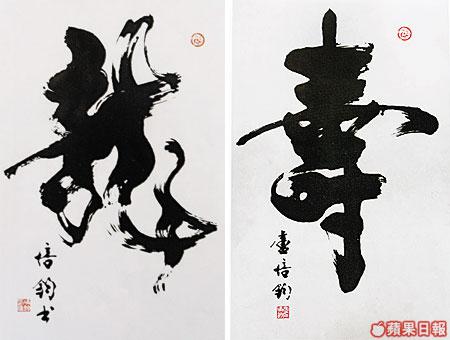 龍
培鈞书
壽
培鈞
蘋果日報